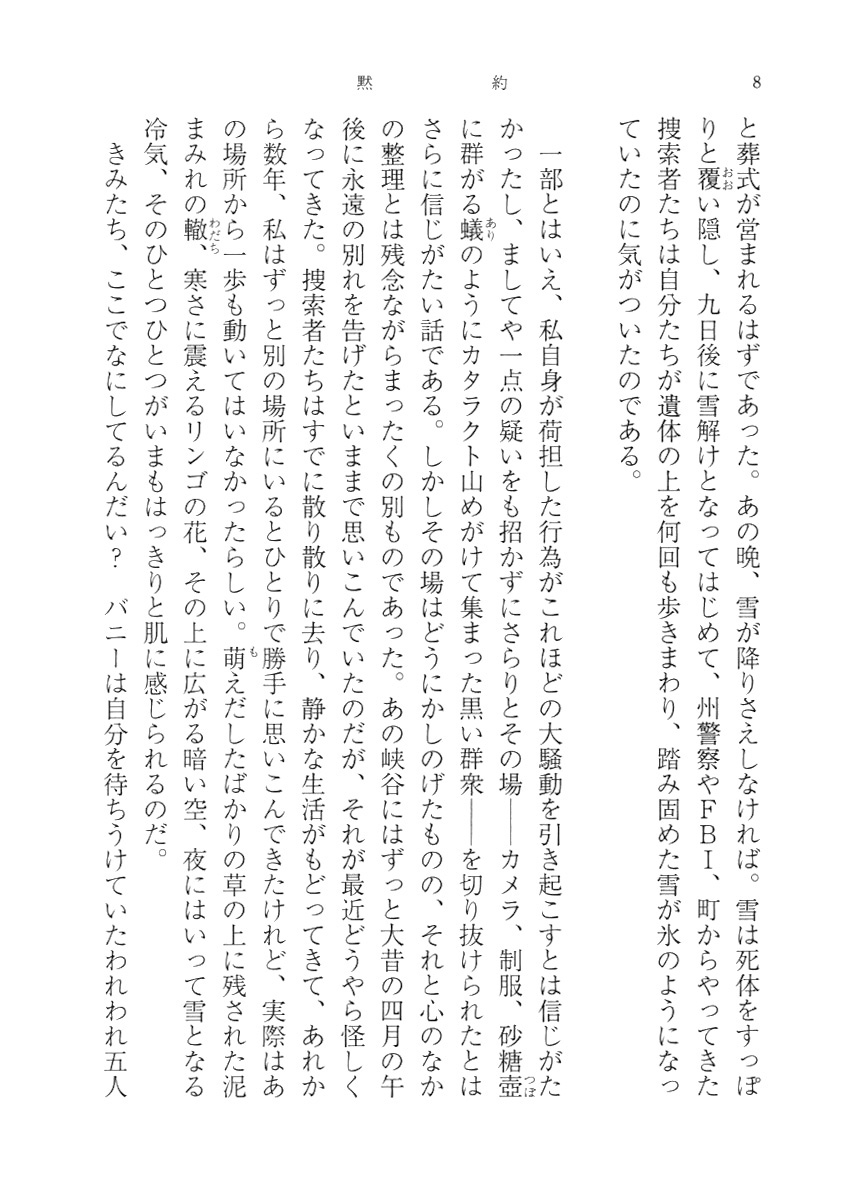 8
黙約
と葬式が営まれるはずであった。あの晩、雪が降りさえしなければ。雪は死体をすっぽ
りと覆い隠し、九日後に雪解けとなってはじめて、州警察やFBI、町からやってきた
捜索者たちは自分たちが遺体の上を何回も歩きまわり、踏み固めた雪が氷のようになっ
ていたのに気がついたのである。
一部とはいえ、私自身が荷担した行為がこれほどの大騒動を引き起こすとは信じがた
かったし、ましてや一点の疑いをも招かずにさらりとその場――カメラ、制服、砂糖壺
に群がる蟻のようにカタラクト山めがけて集まった黒い群衆――を切り抜けられたとは
さらに信じがたい話である。しかしその場はどうにかしのげたものの、それと心のなか
の整理とは残念ながらまったくの別ものであった。あの峡谷にはずっと大昔の四月の午
後に永遠の別れを告げたといままで思いこんでいたのだが、それが最近どうやら怪しく
なってきた。捜索者たちはすでに散り散りに去り、静かな生活がもどってきて、あれか
ら数年、私はずっと別の場所にいるとひとりで勝手に思いこんできたけれど、実際はあ
の場所から一歩も動いてはいなかったらしい。萌えだしたばかりの草の上に残された泥
まみれの轍、寒さに震えるリンゴの花、その上に広がる暗い空、夜にはいって雪となる
冷気、そのひとつひとつがいまもはっきりと肌に感じられるのだ。
きみたち、ここでなにしてるんだい？　バニーは自分を待ちうけていたわれわれ五人